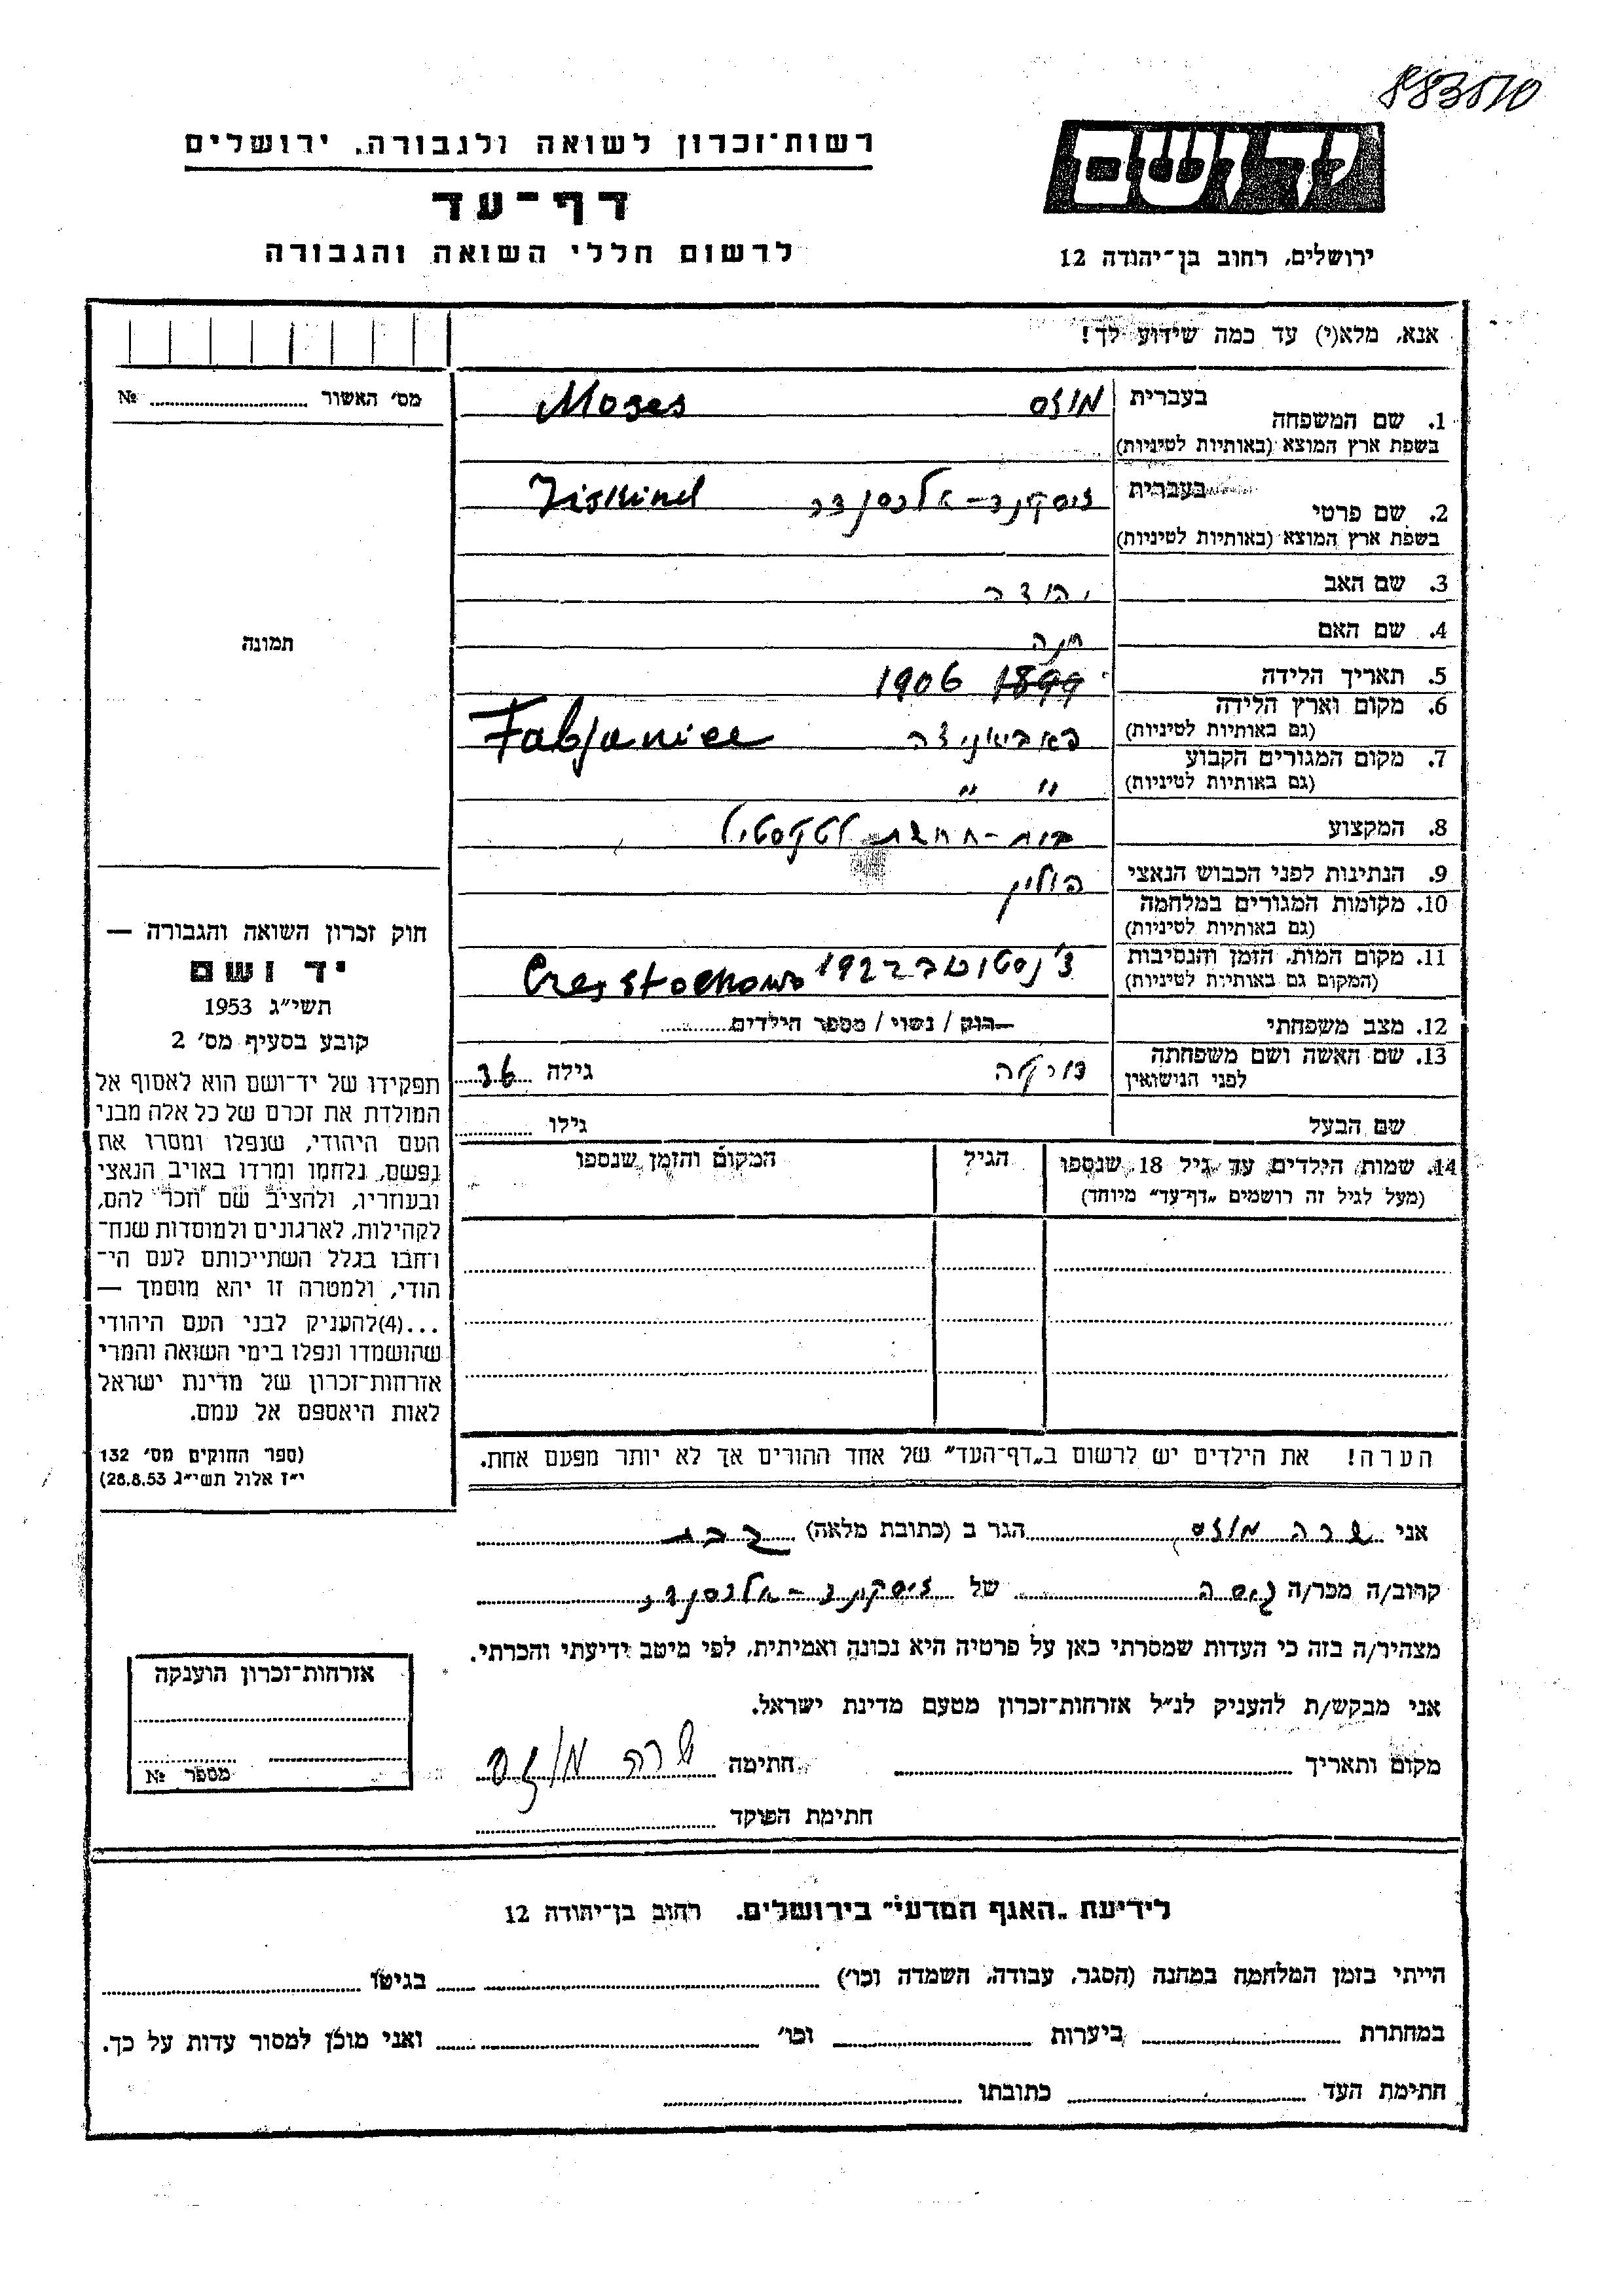 883510
יד ושם
ירושלים, רחוב בן־יהודה 12
רשות־זכרון לשואה ולגבורה, ירושלים
דף־עד
לרשום חללי השואה והגבורה
אנא, מלא(י) עד כמה שידוע לך!
1. שם המשפחה
בעברית מוזס Moses
בשפת ארץ המוצא (באותיות לטיניות)
2. שם פרטי
בעברית זיסקנד-אלכסנדר Ziskind
בשפת ארץ המוצא (באותיות לטיניות)
3. שם האב יהודה
4. שם האם חנה
5. תאריך הלידה 1899 1906
6. מקום וארץ הלידה פאביאניצה Fabjanice
(גם באותיות לטיניות)
7. מקום המגורים הקבוע
(גם באותיות לטיניות) " "
8. המקצוע בית-חרשת לטקסטיל
9. הנתינות לפני הכבוש הנאצי פולין
10. מקומות המגורים במלחמה
(גם באותיות לטיניות)
11. מקום המות, הזמן והנסיבות
(המקום גם באותיות לטיניות)
12. מצב משפחתי רוק / נשוי / מספר הילדים
13. שם האשה ושם משפחתה
לפני הנישואין גילה 36
שם הבעל גילו
14. שמות הילדים עד גיל 18 שנספו הגיל המקום והזמן שנספו
(מעל לגיל זה רושמים „דף־עד" מיוחד)
הערה! את הילדים יש לרשום ב„דף־העד" של אחד ההורים אך לא יותר מפעם אחת.
מס' האשור №
תמונה
חוק זכרון השואה והגבורה —
יד ושם
תשי"ג 1953
קובע בסעיף מס' 2
תפקידו של יד־ושם הוא לאסוף אל
המולדת את זכרם של כל אלה מבני
העם היהודי, שנפלו ומסרו את
נפשם, נלחמו ומרדו באויב הנאצי
ובעוזריו, ולהציב שם וזכר להם,
לקהילות, לארגונים ולמוסדות שנח־
רבו בגלל השתייכותם לעם הי־
הודי, ולמטרה זו יהא מוסמך —
...(4)להעניק לבני העם היהודי
שהושמדו ונפלו בימי השואה והמרי
אזרחות־זכרון של מדינת ישראל
לאות היאספם אל עמם.
(ספר החוקים מס' 132
י"ז אלול תשי"ג 28.8.53)
אני שרה מוזס הגר ב (כתובת מלאה)
קרוב/ה מכר/ה גיסה של זיסקנד-אלכסנדר
מצהיר/ה בזה כי העדות שמסרתי כאן על פרטיה היא נכונה ואמיתית, לפי מיטב ידיעתי והכרתי.
אני מבקש/ת להעניק לנ"ל אזרחות־זכרון מטעם מדינת ישראל.
מקום ותאריך חתימה שרה מוזס
חתימת הפוקד
אזרחות־זכרון הוענקה
מספר №
לידיעת „האגף המדעי" בירושלים, רחוב בן־יהודה 12
הייתי בזמן המלחמה במחנה (הסגר, עבודה, השמדה וכו') בגיטו
במחתרת ביערות וכו' ואני מוכן למסור עדות על כך.
חתימת העד כתובתו